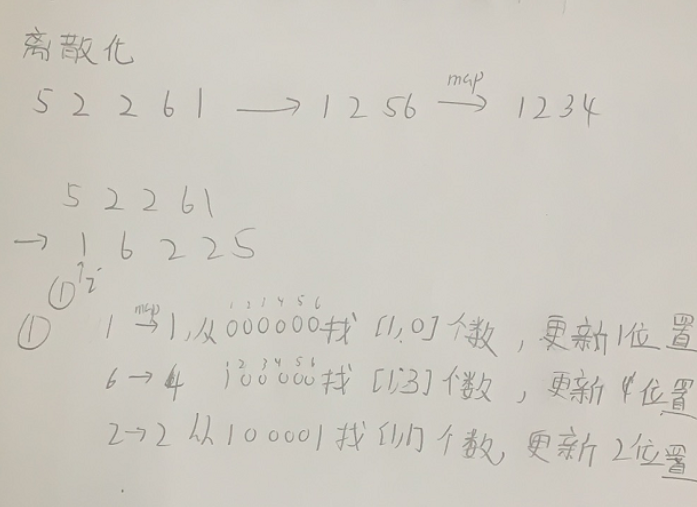 离散化
5 2 2 6 1 → 1 2 5 6 map→ 1 2 3 4
5 2 2 6 1
→ 1 6 2 2 5
① ↑i
① 1 map→ 1, 从 000000 找 [1,0] 个数, 更新1位置
1 2 3 4 5 6
6 → 4 100000 找 [1,3] 个数, 更新4位置
2 3 4 5 6
2→2 从 100001 找 [1,1] 个数, 更新2位置